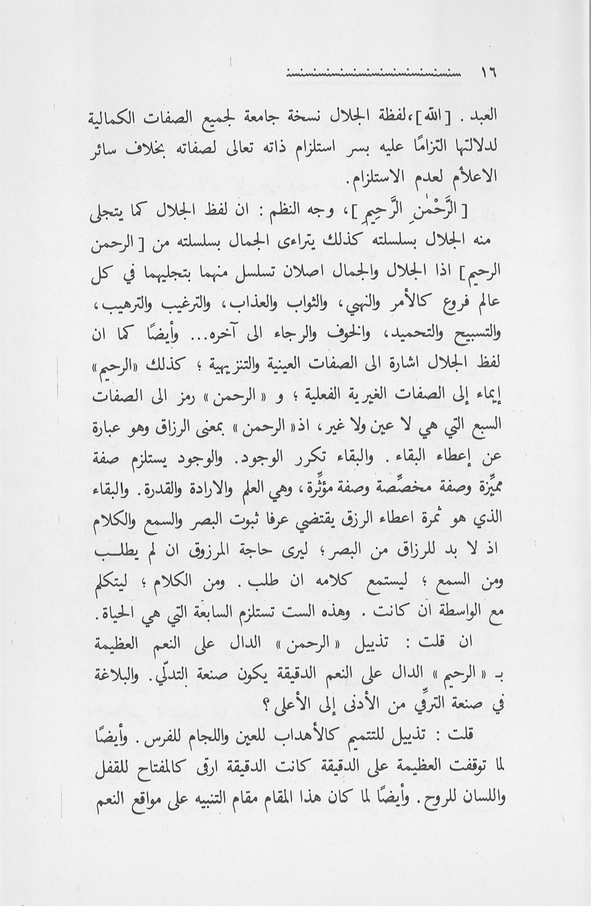 ١٦
العبد . [الله]،لفظة الجلال نسخة جامعة لجميع الصفات الكمالية
لدلالتها التزامًا عليه بسر استلزام ذاته تعالى لصفاته بخلاف سائر
الاعلأم لعدم الاستلزام.
[ الرَّحْمٰنِ الرَّحِيمِ ]، وجه النظم : ان لفظ الجلال كما يتجلى
منه الجلال بسلسلته كذلك يتراءى الجمال بسلسلته من [ الرحمن
الرحيم] اذا الجلال والجمال اصلان تسلسل منهما بتجليهما في كل
عالم فروع كالأمر والنهي، والثواب والعذاب، والترغيب والترهيب،
والتسبيح والتحميد، والخوف والرجاء الى آخره... وأيضًا كما ان
لفظ الجلال اشارة الى الصفات العينية والتنزيهية ؛ كذلك «الرحيم»
إيماء إلى الصفات الغيرية الفعلية ؛ و « الرحمن » رمز الى الصفات
السبع التي هي لا عين ولا غير، اذ« الرحمن » بمعنى الرزاق وهو عبارة
عن إعطاء البقاء . والبقاء تكرر الوجود. والوجود يستلزم صفة
مميِّزة وصفة مخصِّصة وصفة مؤثِّرة، وهي العلم والارادة والقدرة. والبقاء
الذي هو ثمرة اعطاء الرزق يقتضي عرفا ثبوت البصر والسمع والكلام
اذ لا بد للرزاق من البصر؛ ليرى حاجة المرزوق ان لم يطلب
ومن السمع ؛ ليستمع كلامه ان طلب . ومن الكلام ؛ ليتكلم
مع الواسطة ان كانت . وهذه الست تستلزم السابعة التي هي الحياة.
ان قلت : تذييل « الرحمن » الدال على النعم العظيمة
بـ « الرحيم » الدال على النعم الدقيقة يكون صنعة التدلّي. والبلاغة
في صنعة الترقِّي من الأدنى إلى الأعلى ؟
قلت : تذييل للتتميم كالأهداب للعين واللجام للفرس . وأيضًا
لما توقفت العظيمة على الدقيقة كانت الدقيقة ارقى كالمفتاح للقفل
واللسان للروح. وأيضًا لما كان هذا المقام مقام التنبيه على مواقع النعم